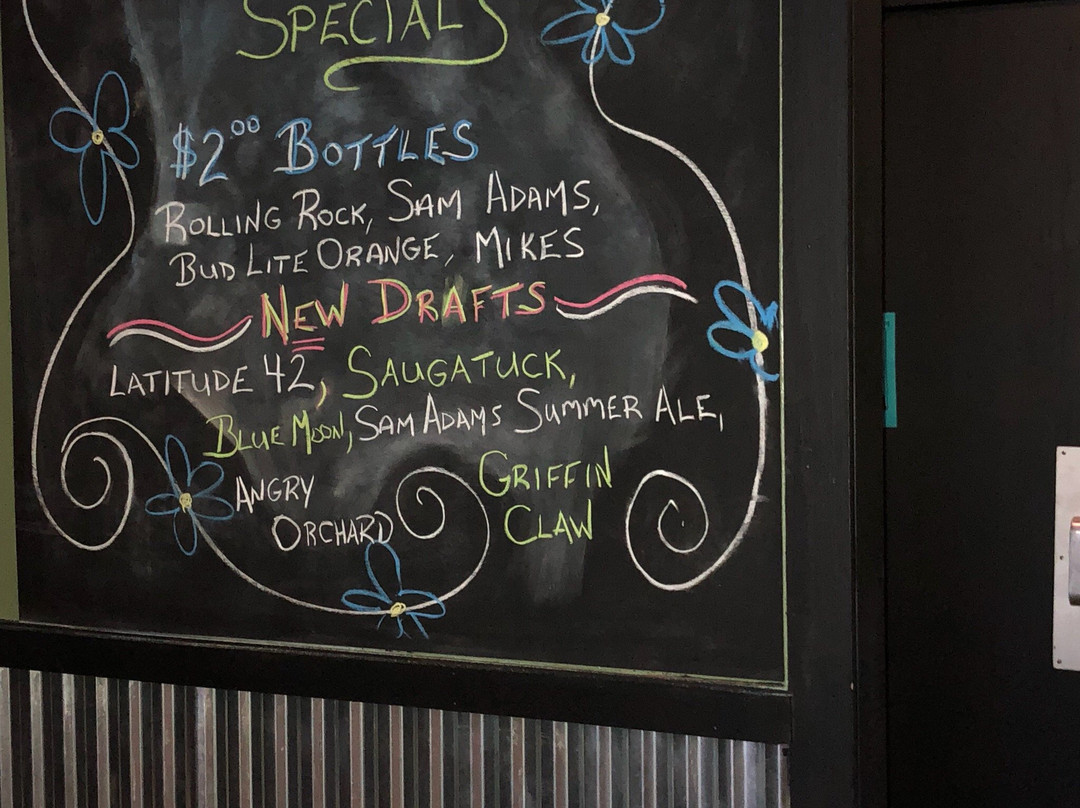 SPECIALS
$2.00 BOTTLES
ROLLING ROCK, SAM ADAMS,
BUD LITE ORANGE, MIKES
NEW DRAFTS
LATITUDE 42, SAUGATUCK,
BLUE MOON, SAM ADAMS SUMMER ALE,
ANGRY
ORCHARD
GRIFFIN
CLAW